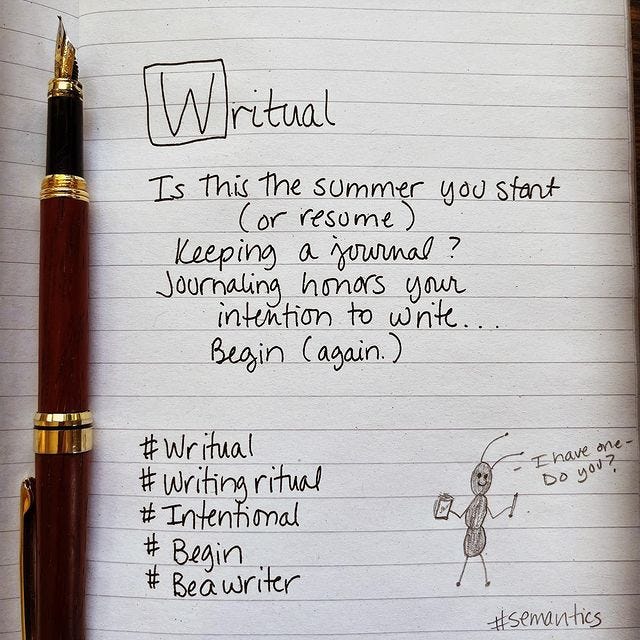 Writual
Is this the summer you start
(or resume)
Keeping a journal?
Journaling honors your
intention to write...
Begin (again.)
#Writual
#Writingritual
#Intentional
#Begin
#Beawriter
- I have one-
Do you?
#semantics